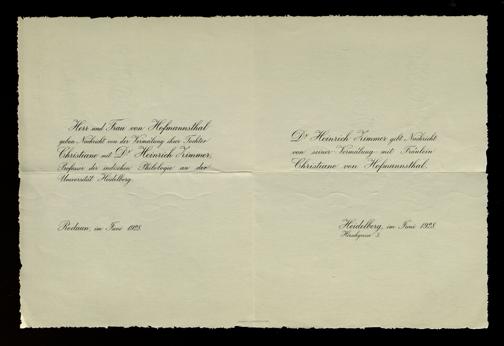 Herr und Frau von Hofmannsthal
geben Nachricht von der Vermälung ihrer Tochter
Christiane mit Dr Heinrich Zimmer,
Professor der indischen Philologie an der
Universität Heidelberg.
Rodaun, im Juni 1928.
Dr Heinrich Zimmer gibt Nachricht
von seiner Vermälung mit Fräulein
Christiane von Hofmannsthal.
Heidelberg, im Juni 1928.